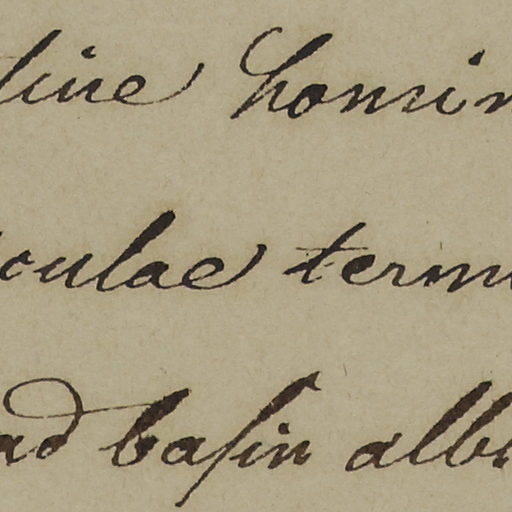 sive homin
culae term
ad basin alb